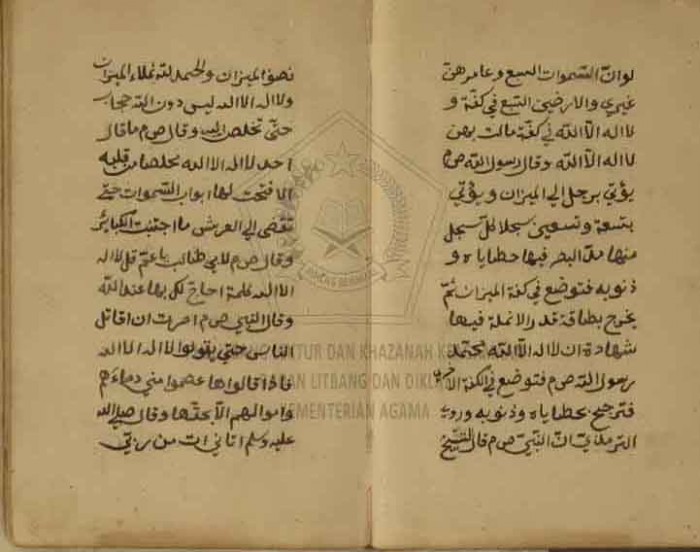 لوانّ السّموات السبع وعامرهنّ
غيري والارضين السّبع في كفّة و
لااله الّا اللّه في كفّة مالت بهنّ
لااله الّا اللّه وقال رسول اللّه ص م
يؤتي برجل الي الميزان ويؤتي
بتسعة وتسعين سجلا كل سجل
منها مدّ البصر فيها خطاياه و
ذنوبه فتوضع في كفة الميزان ثمّ
يخرج بطاقة قدر الانملة فيها
شهادة ان لااله الّا اللّه محمد
رسول اللّه ص م فتوضع في الكفة الاخري
فترجح بخطاياه وذنوبه وروي
الترمذي انّ النّبيّ ص م قال التسبيح
نصف الميزان والحمد للّه تملاء الميزان
ولااله الااللّه ليس دون اللّه حجاب
حتّي تخلص اليه وقال ص م ماقال
احد لااله الا اللّه مخلصا من قلبه
الا فتحت لها ابواب السّموات حتّي
تفضي الي العرش ما اجتنبت الكبائر
وقال ص م لابي طالب ياعمّ قل لااله
الا اللّه كلمة احاجّ لك بها عند اللّه
وقال النّبي ص م امرت ان اقاتل
الناس حتّي يقولوا لااله الا اللّه
فاذا قالوها عصموا مني دماءهم
واموالهم الّا بحقّها وقال صلي اللّه
عليه وسلم اتاني ات من ربّي
KEMENTERIAN AGAMA